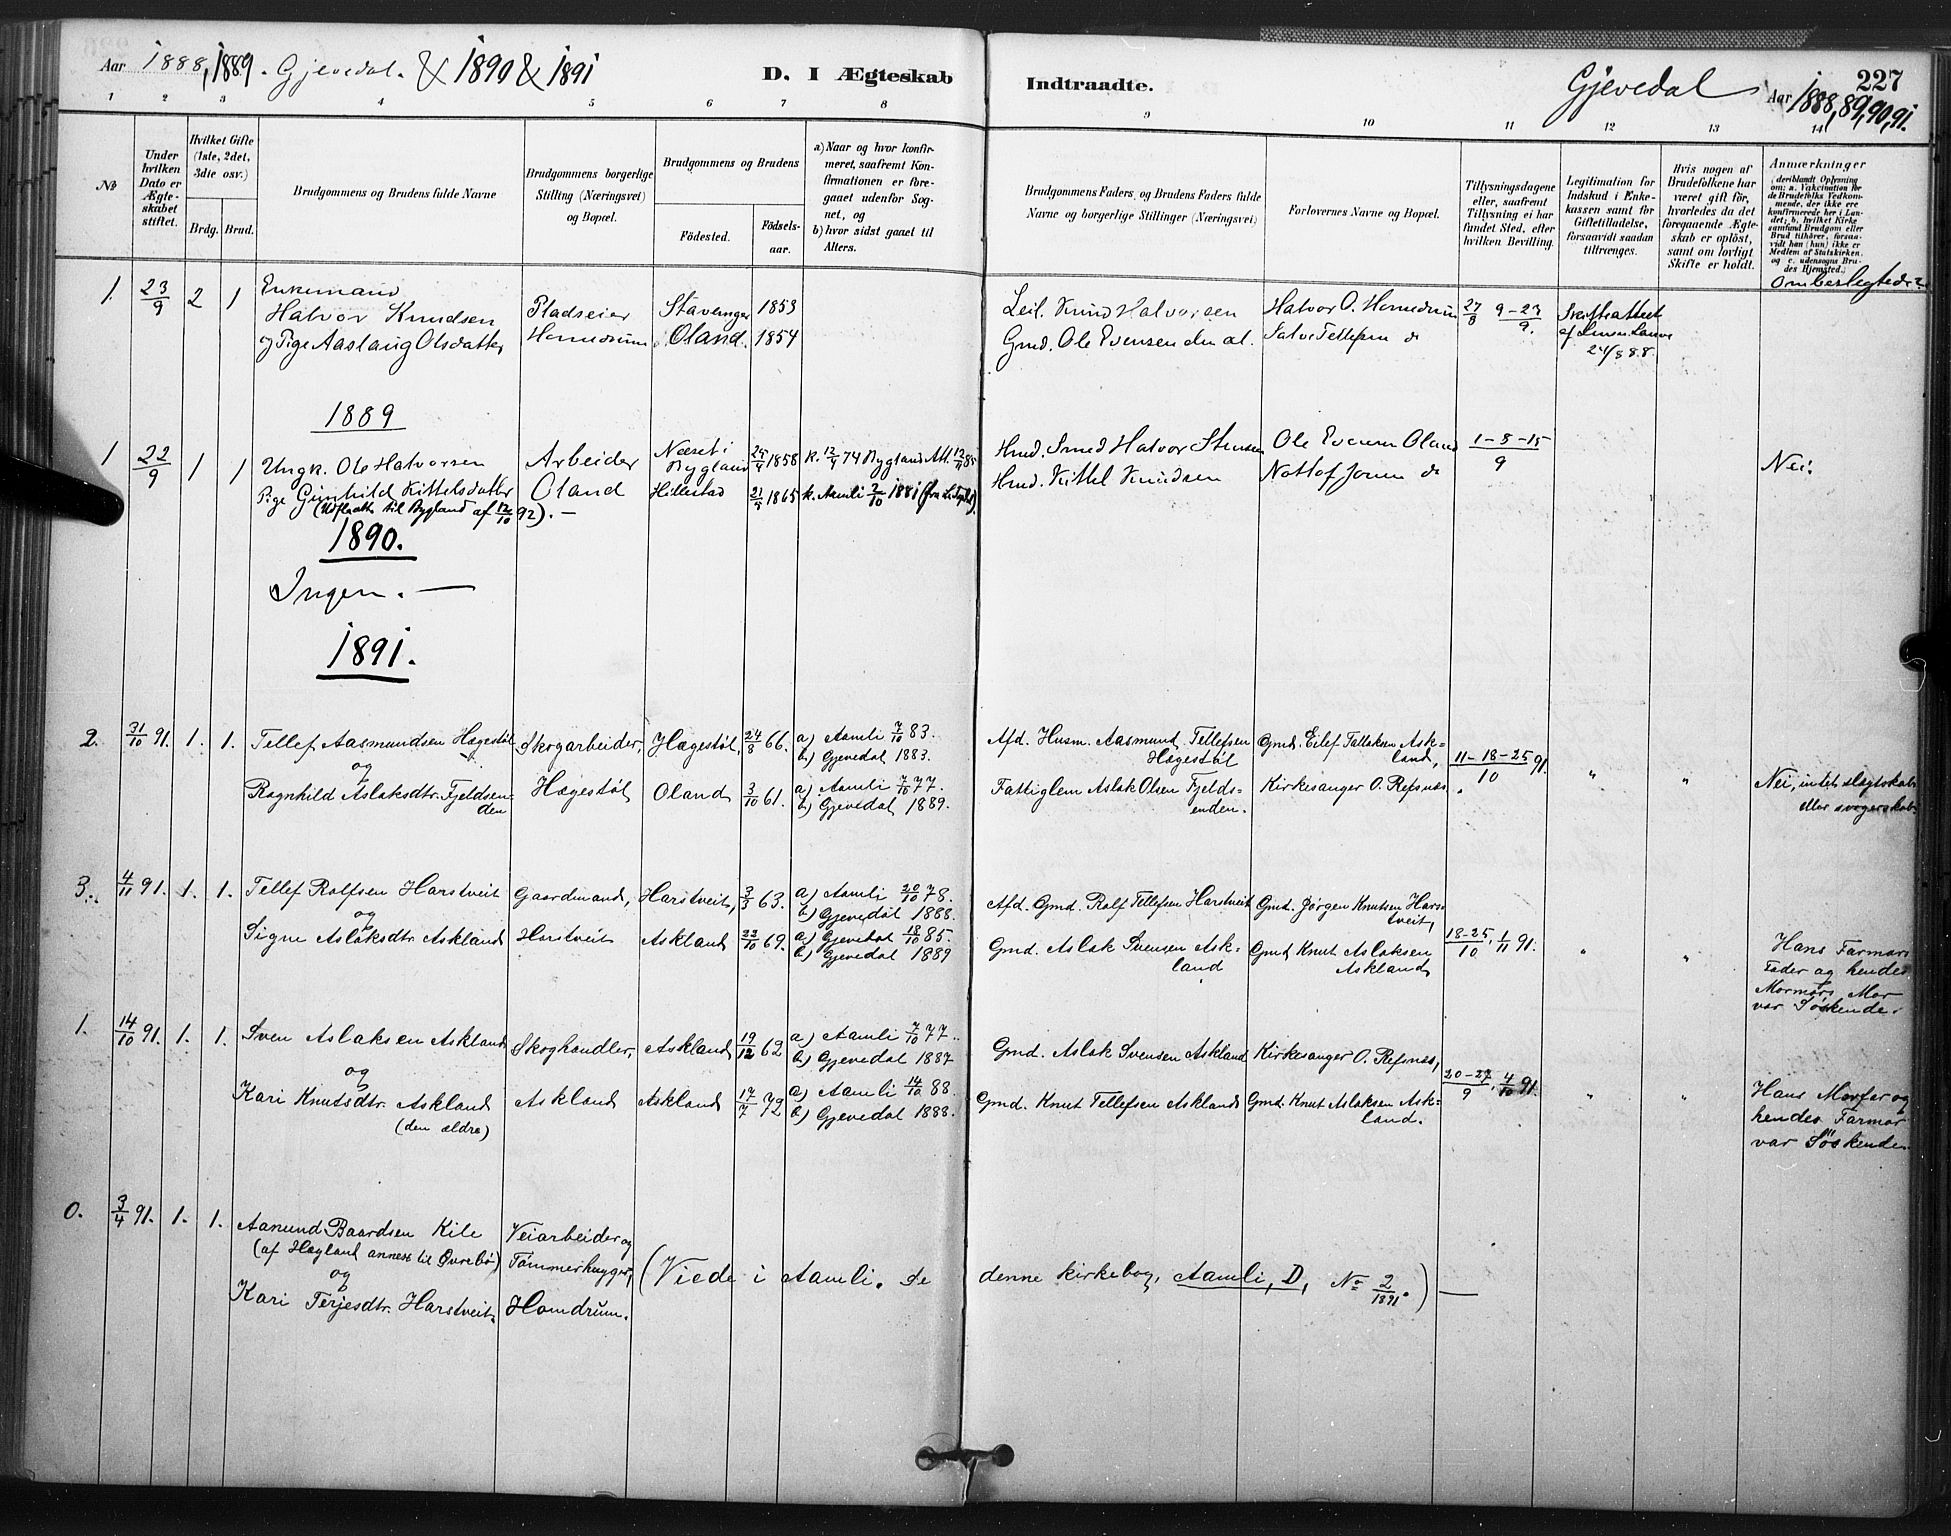 Aar 1888, 1889. Gjevedal. & 1890 & 1891
D. I Ægteskab
Indtraadte.
Gjevedal
227
Aar 1888, 89, 90, 91.
1 2 3 4 5 6 7 8 9 10 11 12 13 14
No
Under hvilken Dato er Ægteskabet stiftet.
Hvilket Gifte (1ste, 2det, 3die osv.)
Brdg. Brud.
Brudgommens og Brudens fulde Navne
Brudgommens borgerlige Stilling (Næringsvei) og Bopæl.
Brudgommens og Brudens
Fødested.
Fødselsaar.
a) Naar og hvor konfirmeret, saafremt Konfirmationen er foregaaet udenfor Sognet, og
b) hvor sidst gaaet til Alters.
Brudgommens Faders, og Brudens Faders fulde Navne og borgerlige Stillinger (Næringsvei)
Forlovernes Navne og Bopæl.
Tillysningsdagene eller, saafremt Tillysning ei har fundet Sted, efter hvilken Bevilling.
Legitimation for Indskud i Enkekassen samt for Giftetilladelse, forsaavidt saadan tiltrænges.
Hvis nogen af Brudefolkene har været gift før, hvorledes da det foregaaende Ægteskab er opløst, samt om lovligt Skifte er holdt.
Anmærkninger
(deriblandt Oplysning om: a. Vakcination for de Brudefolks Vedkommende, der ikke ere konfirmerede her i Landet; b. hvilket Kirkesamfund Brudgom eller Brud tilhører, forsaavidt han (hun) ikke er Medlem af Statskirken, og c. udensogns Brudes Hjemsted.)
Om beslegtede?
1. 23/9 2 1 Enkemand
Halvor Knudsen Pladseier Stavanger 1853 Leil. Knud Halvorsen Halvor O. Homdrum 27/8 9-23/9. Skifteattest
og Pige Aaslaug Olsdatter Homdrum Oland. 1854 Gmd. Ole Evensen Salve Tellefsen
1889
1 22/9 1 1 Ungk. Ole Halvorsen Arbeider Næset i Bygland 1858 k. 74 Bygland Hmd. Smed Halvor Ole Evensen Oland 1-8-15/9 Nei.
Pige Gunhild Kittelsdatter Oland Hillestad 1865 k. Aamli 2/10 1881 Hmd. Kittel Knudsen
(Udflytt til Bygland af 12/10 92). —
1890.
Ingen. —
1891.
2. 31/10 91. 1. 1. Tellef Aasmundsen Hægestøl Skogarbeider, Hægestøl, 24/8 66. a) Aamli 7/10 83. Afd. Husm. Aasmund Tellefsen Hægestøl Gmd. Eilef Tallaksen Askland, 11-18-25/10 91.
b) Gjevedal 1883.
og
Ragnhild Aslaksdtr. Fjeldsenden Hægestøl Oland 3/10 61. a) Aamli 7/10 77. Fattiglem Aslak Olsen Fjeldsenden. Kirkesanger O. Refsnæs. " " Nei, intet slagtskab eller svogerskab.
b) Gjevedal 1889.
3. 4/11 91. 1. 1. Tellef Rolfsen Harstveit Gaardmand, Harstveit, 3/3 63. a) Aamli 20/10 78. Afd. Gmd. Rolf Tellefsen Harstveit Gmd. Jørgen Knutsen Harstveit,
b) Gjevedal 1888.
og
Signe Aslaksdtr. Askland Harstveit Askland 22/10 69. a) Gjevedal 18/10 85. Gmd. Aslak Svensen Askland Gmd Knut Aslaksen Askland 18-25/10, 1/11 91. " " Hans Farmors Fader og hendes Mormors Mor var Søskende.
b) Gjevedal 1889
1. 14/10 91. 1. 1. Sven Aslaksen Askland Skoghandler, Askland 19/12 62 a) Aamli 7/10 77. Gmd. Aslak Svensen Askland Kirkesanger O. Refsnæs,
b) Gjevedal 1887
og
Kari Knutsdtr. Askland Askland Askland 17/7 72 a) Aamli 14/10 88. Gmd. Knut Tellefsen Askland Gmd. Knut Aslaksen Askland. 20-27/9, 4/10 91. " " Hans Morfar og hendes Farmor var Søskende.
(den ældre) b) Gjevedal 1888.
0. 3/4 91. 1. 1. Aanund Baardsen Kile Veiarbeider og
(af Hægland annex til Øvrebø) Tømmerhugger, (Viede i Aamli. Se denne kirkebog, Aamli, D, No 2/1891.) —
og
Kari Terjesdtr. Harstveit. Homdrum.